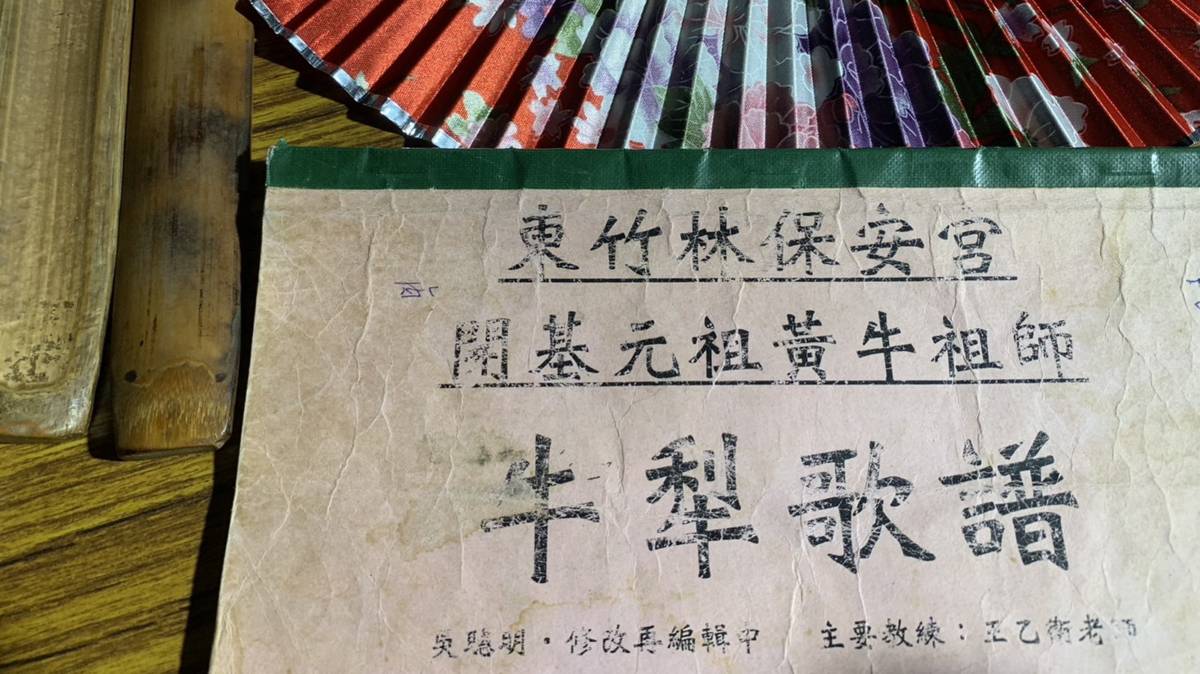 東竹林保安宮
開基元祖黃牛祖師
牛犁歌譜
吳聰明・修改再編輯中 主要教練：王乙衛老師